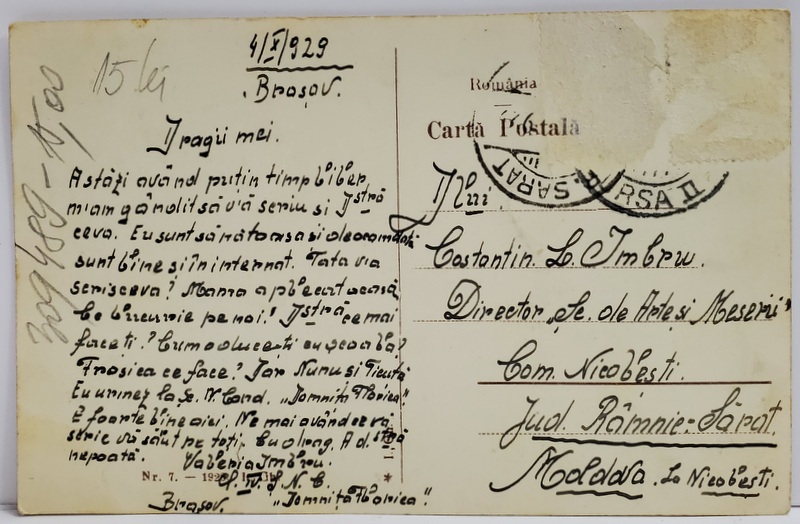 4/X/929
Brașov.
15 lei
309489-15,00
Dragii mei.
Astăzi având puțin timp liber
m'am gândit să vă scriu și Dstră
ceva. Eu sunt sănătoasă și deocamdată
sunt bine și în internat. Tata v-a
scris ceva? Mama a plecat acasă
Ce bucurie pe noi! Dstră ce mai
faceți? Cum o duceți cu școala?
Frosica ce face? Dar Nunu și Ticuță
Eu urmez la Șc. N. Cond. „Domnița Florica".
E foarte bine aici. Ne mai având ce vă
scrie vă sărut pe toți. Cu drag. A d.stră
nepoată. Valeria Imbru.
Ș. N. C.
Brașov. „Domnița Florica".
Nr. 7. — 192
România
Carta Postală
R. SARAT
RSA II
Dlui
Costantin. L. Imbru.
Director „Șc. de Arte și Meserii"
Com. Nicolești.
Jud. Râmnic-Sărat.
Moldova. La Nicolești.